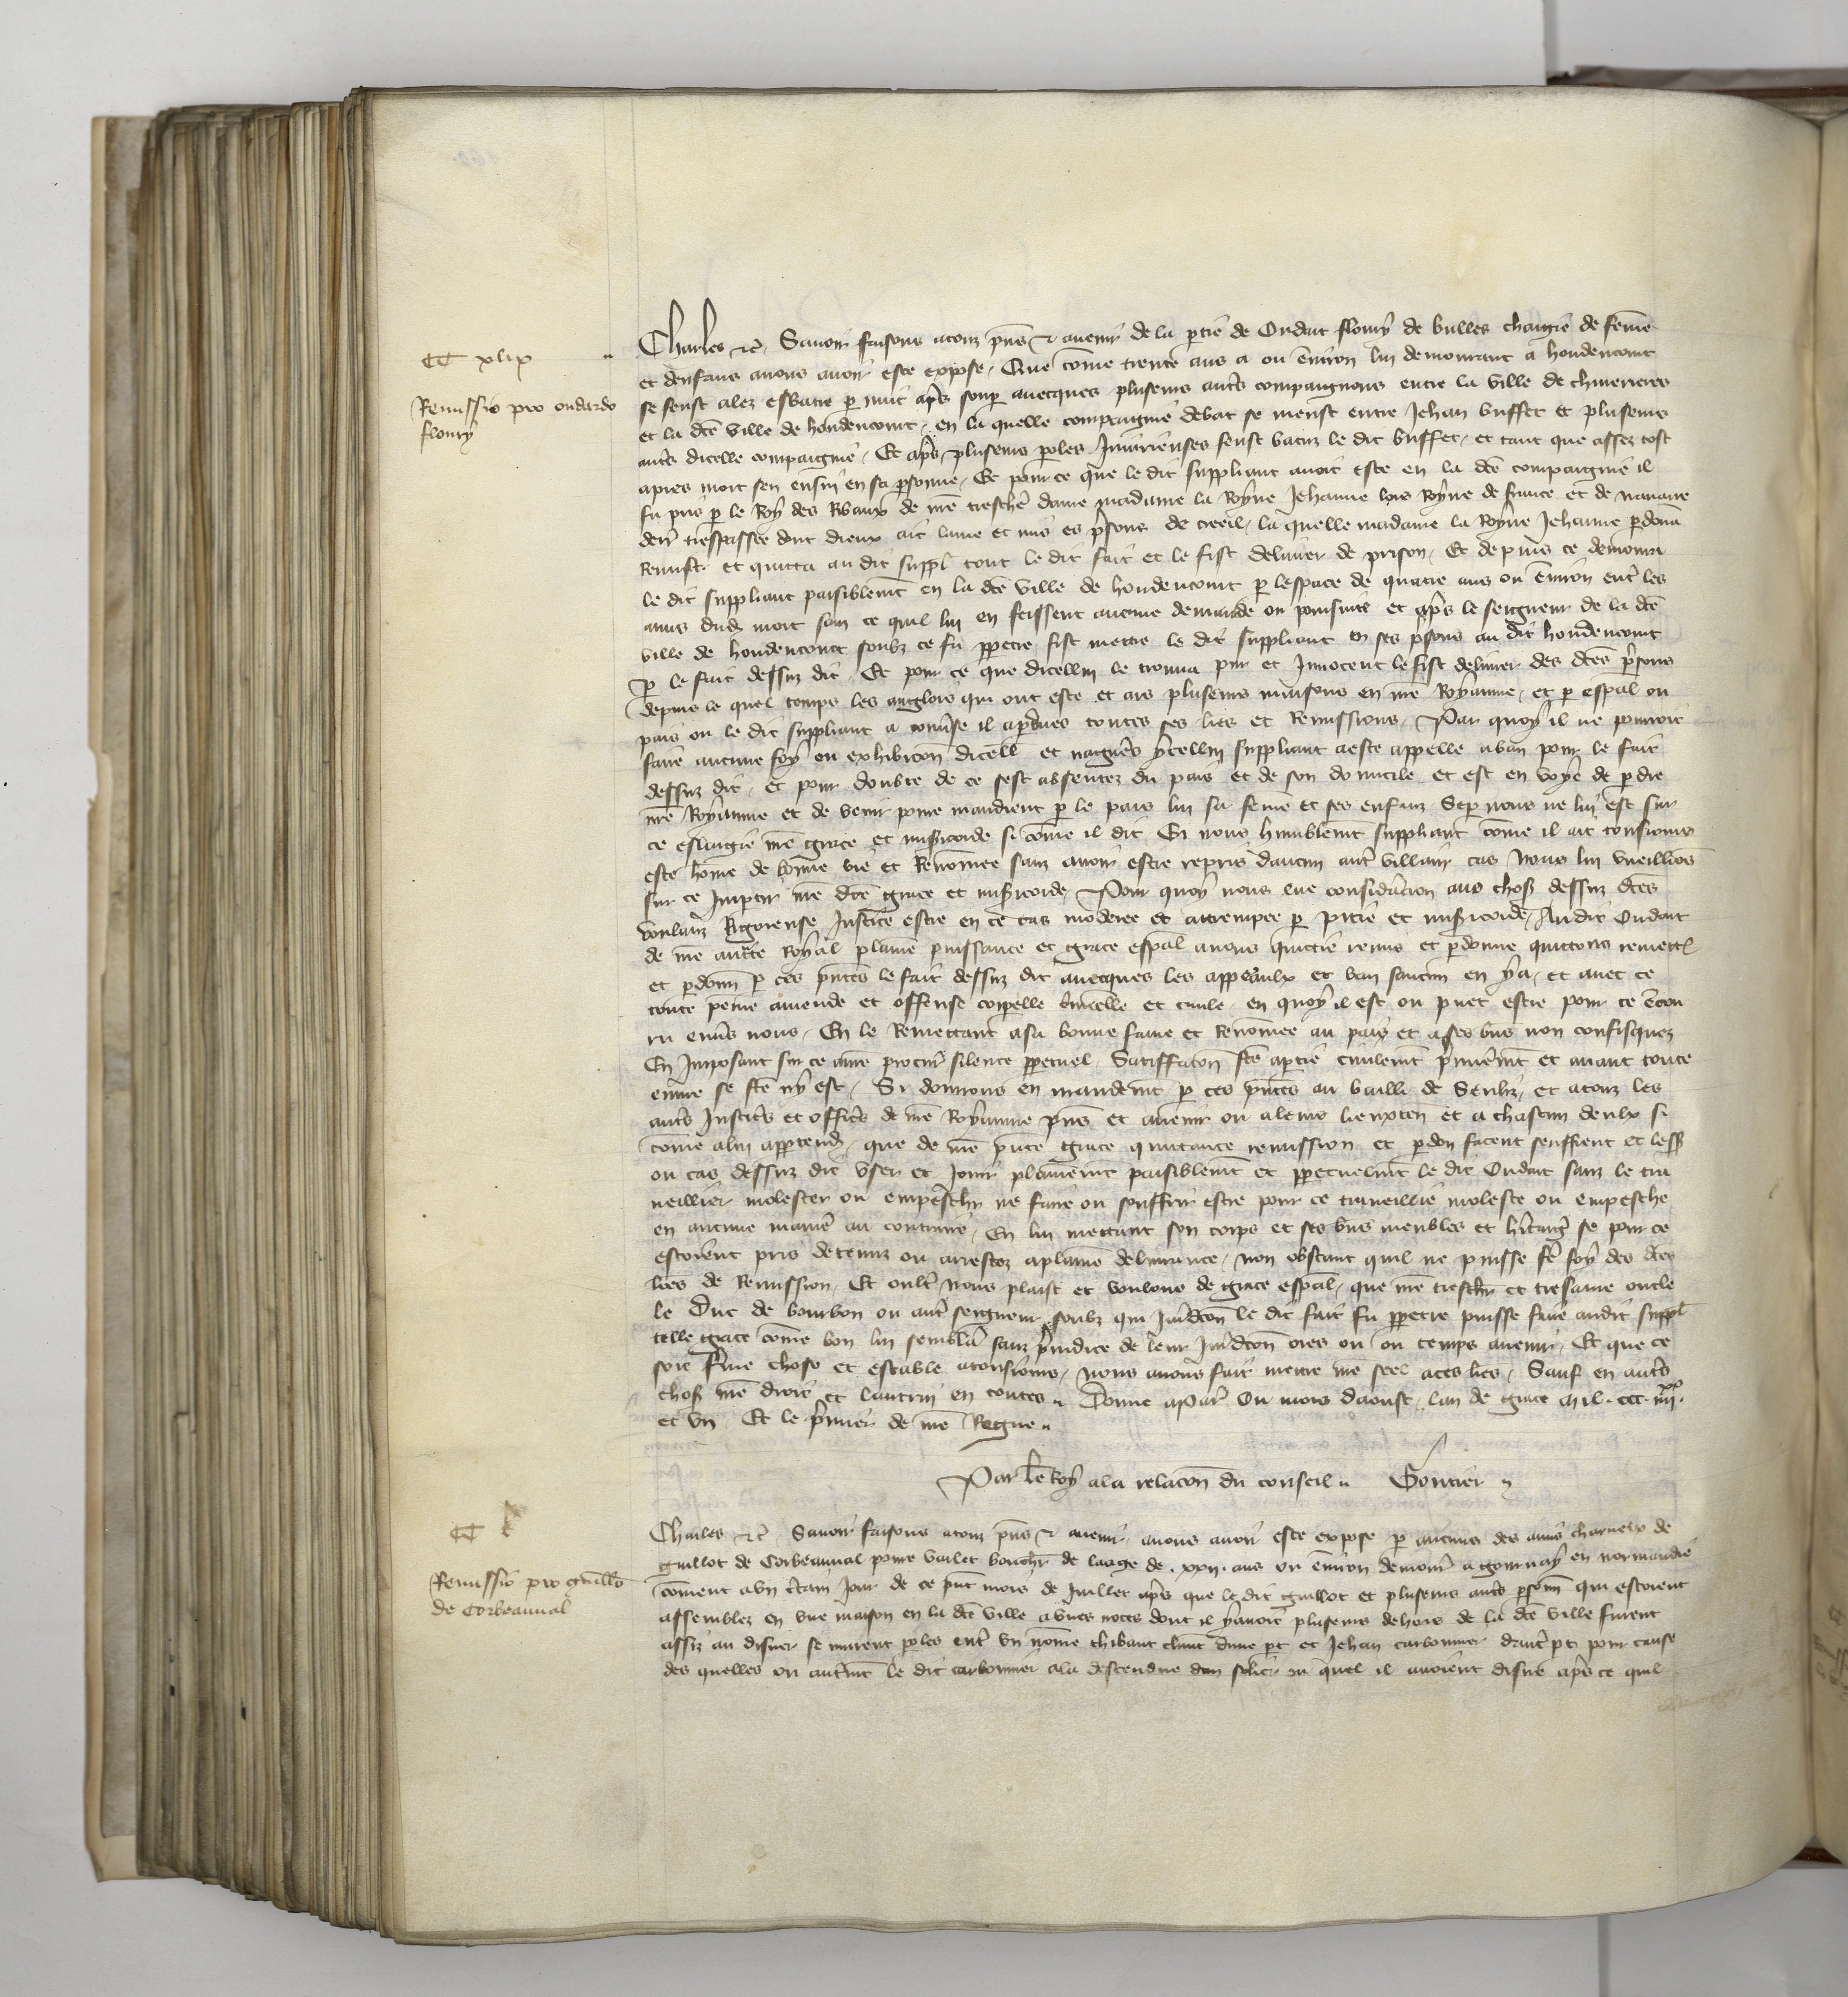 CC xlix
Remissio pro oudardo
floury
Charles etc. Savoir faisons a touz p̃ns et avenir de la p̃tie de Oudart floury de bulles chargie de fẽme
et denfans a nous avoir este expose, Que cõme trente ans a ou ẽviron lui demourant a houdencourt
se feust alez esbatre p nuit ap̃s soup avecques plusieurs aut̃s compaignons entre la ville de chevrieres
et la dc̃e ville de houdencourt, en la quelle compaignie debat se meust entre Jehan buffet et plusieurs
aut̃s dicelle compaignie, Et ap̃s plusieurs poles Jniurieuses feust batuz le dit buffet, et tant que assez tost
apres mort sen ensuï en sa p̃sonne, Et pour ce que le dit suppliant avoit este en la dc̃e compaignie il
fu pris p le Roy des Ribaux de nr̃e treschẽ dame madame la Royne Jehanne lors Royne de france et de navarre
derr̃ trespassee dont dieux ait lame et mis es p̃sons de creeil, la quelle madame la Royne Jehanne pdona
Remist et quitta au dit suppl̃ tout le dit fait et le fist delivrer de prison, Et depuis ce demoura
le dit suppliant paisiblem̃t en la dc̃e ville de houdencourt p lespace de quatre ans ou ẽviron ent̃ les
amis dud̃ mort sans ce quil lui en feissent aucune demande ou poursuite et ap̃s le seigneur de la dc̃e
ville de houdencourt soubz ce fu ppetre fist mettre le dit suppliant en ses p̃sons au dit houdencourt
p le fait dessuz dit, Et pour ce que dicellui le trouva pur et Jnnocent le fist delivrer des dc̃es p̃sons
depuis le quel temps les anglois qui ont este et ars plusieurs maisons en nr̃e Royaume, et p esp̃al ou
pais ou le dit suppliant a convse il a pdues toutes ses l̃res et Remissions, Par quoy il ne pourroit
faire aucune foy ou exhibicõn dicell̃ et nagueres ycellui suppliant a este appelle a ban pour le fait
dessuz dit, et pour doubte de ce sest absentez du pais et de son domicile et est en voye de pdre
nr̃e Royaume et de venir povre mandient p le pais lui sa fẽme et ses enfanz Se p nous ne lui est sur
ce eslargie nr̃e grace et mis̃icorde si cõme il dit En nous humblem̃t suppliant cõme il ait tousiours
este hõme de bonne vie et Renõmee sanz avoir este repris daucun aut̃ villain cas Nous lui vueillions
sur ce Jmptir nr̃e dc̃e grace et mis̃icorde, Pour quoy nous eue consid̃acion aus chos̃ dessuz dc̃es
voulanz Rigoreuse Justice estre en ce cas moderee et attrempee p pitie et mis̃icorde, Au dit Oudart
de nr̃e auct̃te Royal plaine puissance et grace esp̃al avons quittie remis et pdonne quittons remett̃
et pdonn̄ p ces p̃ntes le fait dessuz dit avecques les appeaulx et ban saucun en y a, et avec ce
toute peine amende et offense corpelle c̃minelle et civile, en quoy il est ou puet estre pour ce ẽcou
ru ẽvs nous, En le Remettant a sa bonne fame et Renõmee au pais et a ses b̃ns non confisquez
En Jmposant sur ce a nr̃e procur̃ silence ppetuel, Satiffacõn fc̃e a ptie civilem̃t p̃mierem̃t et avant toute
euvre se fc̃e ny est, Si donnons en mandem̃t p ces p̃ntes au bailli de Senliz, et a touz les
aut̃s Justic̃s et offic̃s de nr̃e Royaume p̃ns et avenir ou a leurs lieuxten̄ et a chascun deulx si
cõme a lui apptendr̃, que de nr̃e p̃nte grace quittance remission et pdon facent seuffrent et less̃
ou cas dessuz dit user et Jouir plainem̃t paisiblem̃t et ppetuelm̃t le dit Oudart sanz le tra
veillier molester ou empesch̃r ne faire ou souffrir estre pour ce traveillie moleste ou empesche
en aucune manie au contraire, En lui mettant son corps et ses b̃ns meubles et h̃itaig̃ se pour ce
estoient pris detenuz ou arrestez a plaine delivrance, non obstant quil ne puisse fẽ foy des dc̃es
l̃res de Remission, Et oult̃ Nous plaist et voulons de grace esp̃al, que nr̃e trescħr et tresame oncle
le Duc de bourbon ou aut̃ seigneur soubz qui Jurid̃con le dit fait fu ppetre puisse faire audit suppl̃
telle grace cõme bon lui semblera sanz p̃iudice de leur Jurid̃con ores ou ou temps avenir, Et que ce
soit ferme chose et estable a tousiours, nous avons fait mettre nr̃e seel a ces l̃res, Sauf en aut̃s
chos̃ nr̃e droit et lautrui en toutes. Donne a Par̃ Ou mois daoust, lan de grace mil. ccc. iiii xx.
et un Et le p̃mier de nr̃e Regne.
Par le Roy a la relacõn du conseil. Gontier
CC l
Remissio pro guillo
de Corbeauval
Charles etc. Savoir faisons a touz p̃ns et avenir, a nous avoir este expose p aucuns des amis charnelx de
guillot de Corbeauval povre varlet bouch̃r de laage de .xxii. ans ou ẽviron demour̃ a gournay en normandie
cõment a un c̃tain Jour de ce p̃nt mois de Juillet ap̃s que le dit guillot et plusieurs aut̃s p̃sonn̄ qui estoient
assemblez en une maison en la dc̃e ville a unes noces dont il y avoit plusieurs dehors de la dc̃e ville furent
assiz au disner se murent poles ent̃ un nõme thibaut clim̃t dune pt et Jehan carbonnier daut̃ pt pour cause
des quelles ou autrem̃t le dit carbonnier a la descendue dun solier ou quel il avoient disne ap̃s ce quil